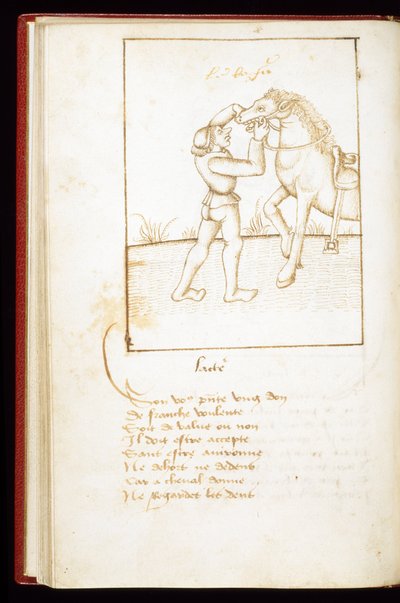 lacte'
Son vos pñte ung don
De franche voulente
Soit de value ou non
Il doit estre accepte
Sans estre auironne
Ne dehors ne dedens
Car a cheval donne
Ne regardez les dent